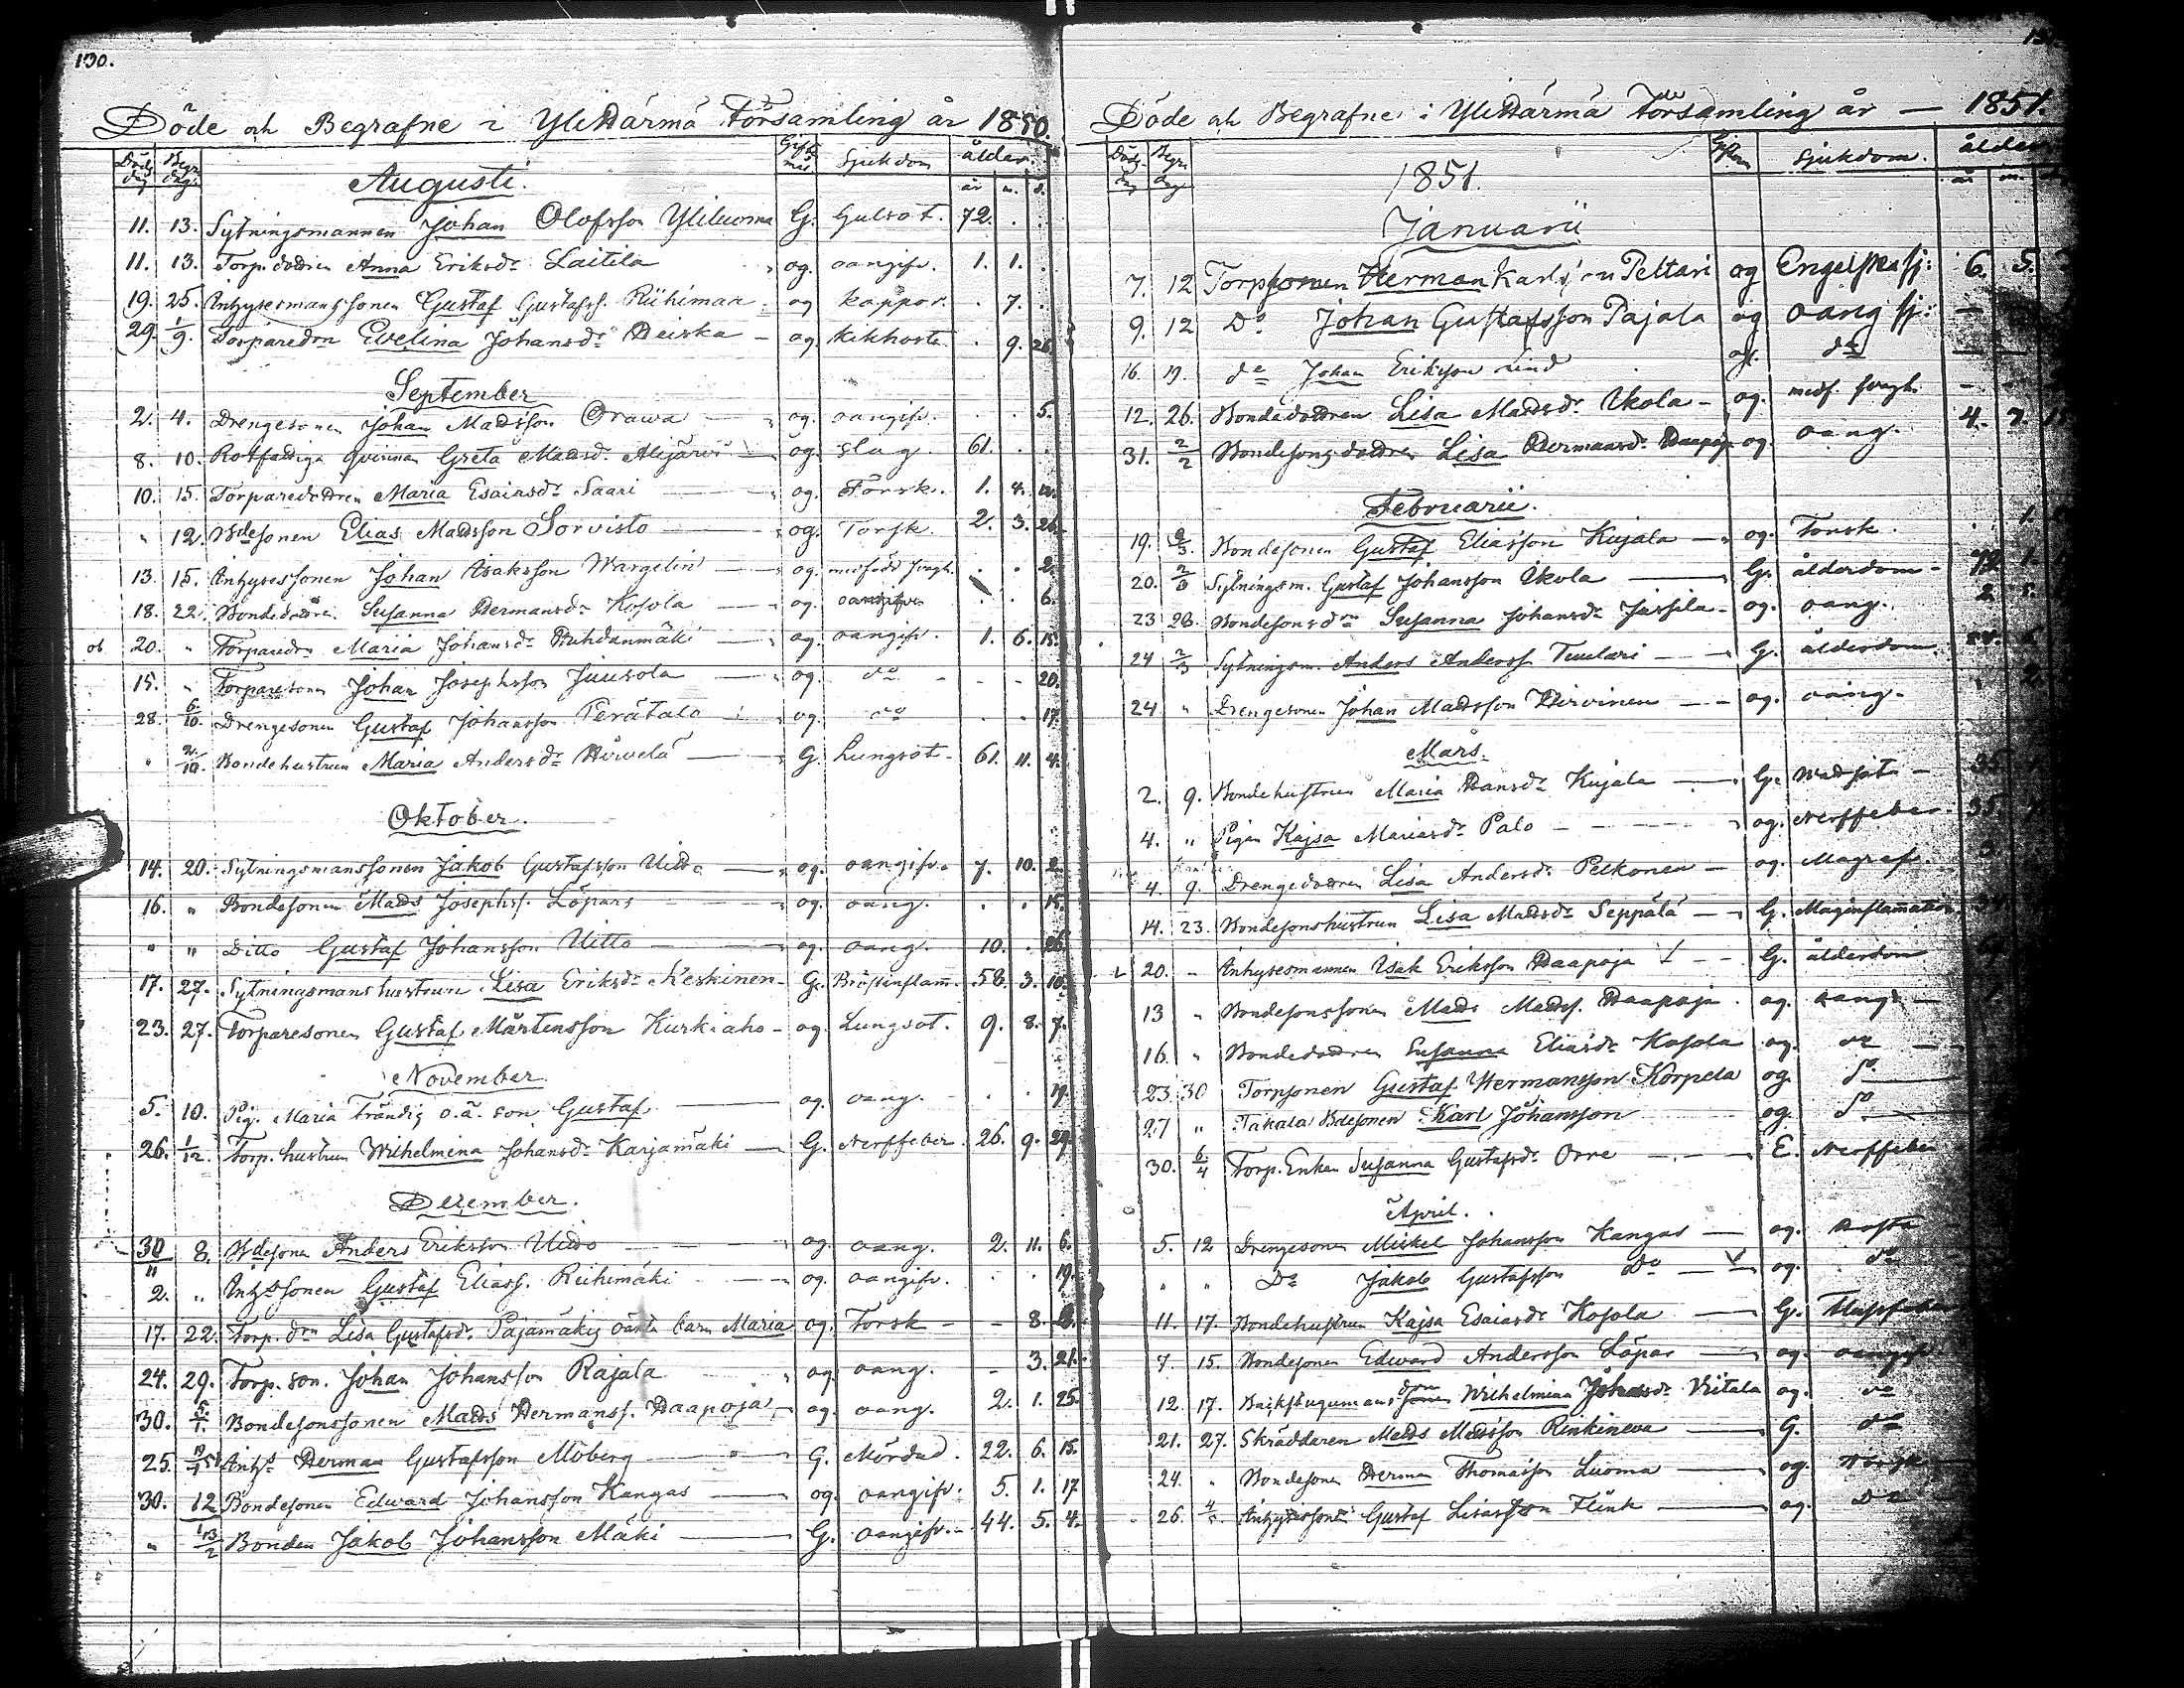 130.
Döde och Begrafne i YliHärmä Församling år 1850.
Död. dag Begr. dag. Gifte mål Sjukdom ålder.
Augusti. år m. d.
11. 13. Sytningsmannen Johan Olofsson Yliluoma G. Gulsot. 72. . .
11. 13. Torp. dottren Anna Eriksdr Laitila og. oangifv. 1. 1. .
19. 25. Inhysesmanssonen Gustaf Gustafss. Riihimäk og koppor. . 7. .
29. 1/9. Torparedrn Evelina Johansdr Heiska - og kikhosta. . 9. 26.
September
2. 4. Drengesonen Johan Madsson Orawa og. oangifv. . . 5.
8. 10. Rotfattiga qvinnan Greta Madsd. Alijärvi og. slag. 61. . .
10. 15. Torparedottren Maria Esaiasdr Saari og. Torsk. 1. 4.
" 12. Bdesonen Elias Madsson Sorvisto og. Torsk. 2. 3. 26.
13. 15. Inhysessonen Johan Isaksson Wargelin og. medfödd svagh. . . 2.
18. 22. Bondedottren Susanna Hermansdr Kosola og. oangifven . . 6.
20. " Torparedrn Maria Johansdr Huhdanmäki og. oangifv. 1. 6. 15.
15. " Torparesonen Johan Josephsson Juusola og. do - - - 20.
28. 6/10. Drengesonen Gustaf Johansson Perätalo og. do . . 17.
" /10. Bondehustrun Maria Andersdr Hirvelä G. Lungsot. 61. 11. 4.
Oktober.
14. 20. Sytningsmanssonen Jakob Gustafsson Uitto og. oangifv. 7. 10. 2.
16. " Bondesonen Mads Josephss. Löpars og. oang. . . 15.
" " Ditto Gustaf Johansson Uitto og. oang. 10. . 26.
17. 27. Sytningsmanshustrun Lisa Eriksdr Keskinen G. Bröstinflam. 58. 3. 10.
23. 27. Torparesonen Gustaf Mårtensson Kurkiaho og. Lungsot. 9. 8. 7.
November.
5. 10. Pig. Maria o.ä. son Gustaf og. oang. . . 19.
26. 1/12. Torp. hustrun Wilhelmina Johansdr Karjamäki G. Nerffeber. 26. 9. 29.
December.
30 8. Bdesonen Anders Eriksson Uitto og. oang. 2. 11. 6.
2. " Inhs sonen Gustaf Eliass. Riihimäki og. oangifv. . . 19.
17. 22. Torp. drn Lisa Gustafsdr Pajamäkis oäkta barn Maria og. Torsk - - 8.
24. 29. Torp. son. Johan Johansson Rajala og. oang. - 3. 21.
30. 5/1. Bondesonssonen Mads Hermanss. Haapoja og. oang. 2. 1. 25.
25. Inhs Herman Gustafsson Moberg G. Mördad. 22. 6. 15.
30. 12 Bondesonen Edward Johansson Kangas og. oangifv. 5. 1. 17
" Bonden Jakob Johansson Mäki G. oangifv. 44. 5. 4.
Döde och Begrafne i YliHärmä Församling år — 1851.
Död. dag Begr. dag Giftem. Sjukdom. ålder
1851. år m.
Januarii
7. 12 Torpsonen Herman Karlsson Peltari og Engelska sj: 6. 5.
9. 12 Do Johan Gustafsson Pajala og oang sj: -
16. 19. do Johan Eriksson Lind og. do
12. 26. Bondedottren Lisa Madsdr Ukola - og. medf. svagh. - -
31. 2/2 Bondesonsdottren Lisa Hermansdr Haapoja og. oang. 4. 7.
Februarii.
19. 2/3. Bondesonen Gustaf Eliasson Kujala og. Torsk. . 1.
20. 2/3 Sytningsm. Gustaf Johansson Ukola G. ålderdom - 1.
23 28. Bondesonsdrn Susanna Johansdr Jussila og. oang. 2
24 2/3 Sytningsm. Anders Anderss. Tuulari G. ålderdom.
24 " Drengesonen Johan Madsson Hirvinen og. oang. 2.
Mars.
2. 9. Bondehustrun Maria Hansdr Kujala G. Wattsot -
4. " Pigan Kajsa Mariasdr Palo og. Nerffeber. 35
4. 9. Drengedottren Lisa Andersdr Pelkonen og. Magref.
14. 23. Bondesonshustrun Lisa Madsdr Seppälä G. Maginflammation
20. " Inhysesmannen Isak Eriksson Haapoja G. ålderdom
13 " Bondesonssonen Mads Madss. Haapoja og. oang.
16. " Bondedottren Susanna Eliasdr Kosola og. do
23. 30 Torpsonen Gustaf Hermansson Korpela og. do
27 " Takala Bdesonen Karl Johansson og. do
30. 6/4 Torp. Enkan Susanna Gustafsdr Orre E. Nerffeber
April.
5. 12 Drengesonen Mickel Johansson Kangas og. Hosta
" " Do Jakob Gustafsson Do og. do
11. 17. Bondehustrun Kajsa Esaiasdr Kosola G.
7. 15. Bondesonen Edward Andersson Löpar og. oangif
12. 17. Backstugumansdrn Wilhelmina Johansdr Viitala og. do
21. 27. Skräddaren Mads Madsson Rinkineva G. do
24. " Bondesonen Herman Thomasson Luoma og. Torsk
26. Inhysessonen Gustaf Lisasson Flink og. Do